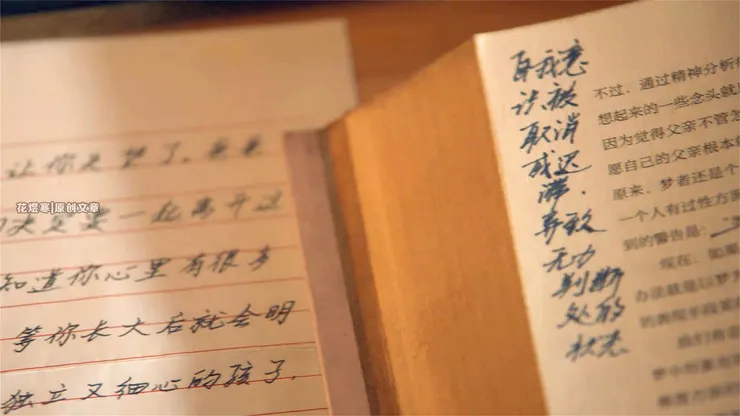 让你失望了，爸爸
花煜寒|原创文章
决定要一起离开这
知道你心里有很多
等你长大后就会明
独立又细心的孩子.
自我意
识被
取消
或迟
滞，
导致
无力
判断
处的
状态
不过，通过精神分析
想起来的一些念头就
因为觉得父亲不管怎
愿自己的父亲根本就
原来，梦者还是个
一个人有过性方面
到的警告是：
现在，如果
办法就是以梦